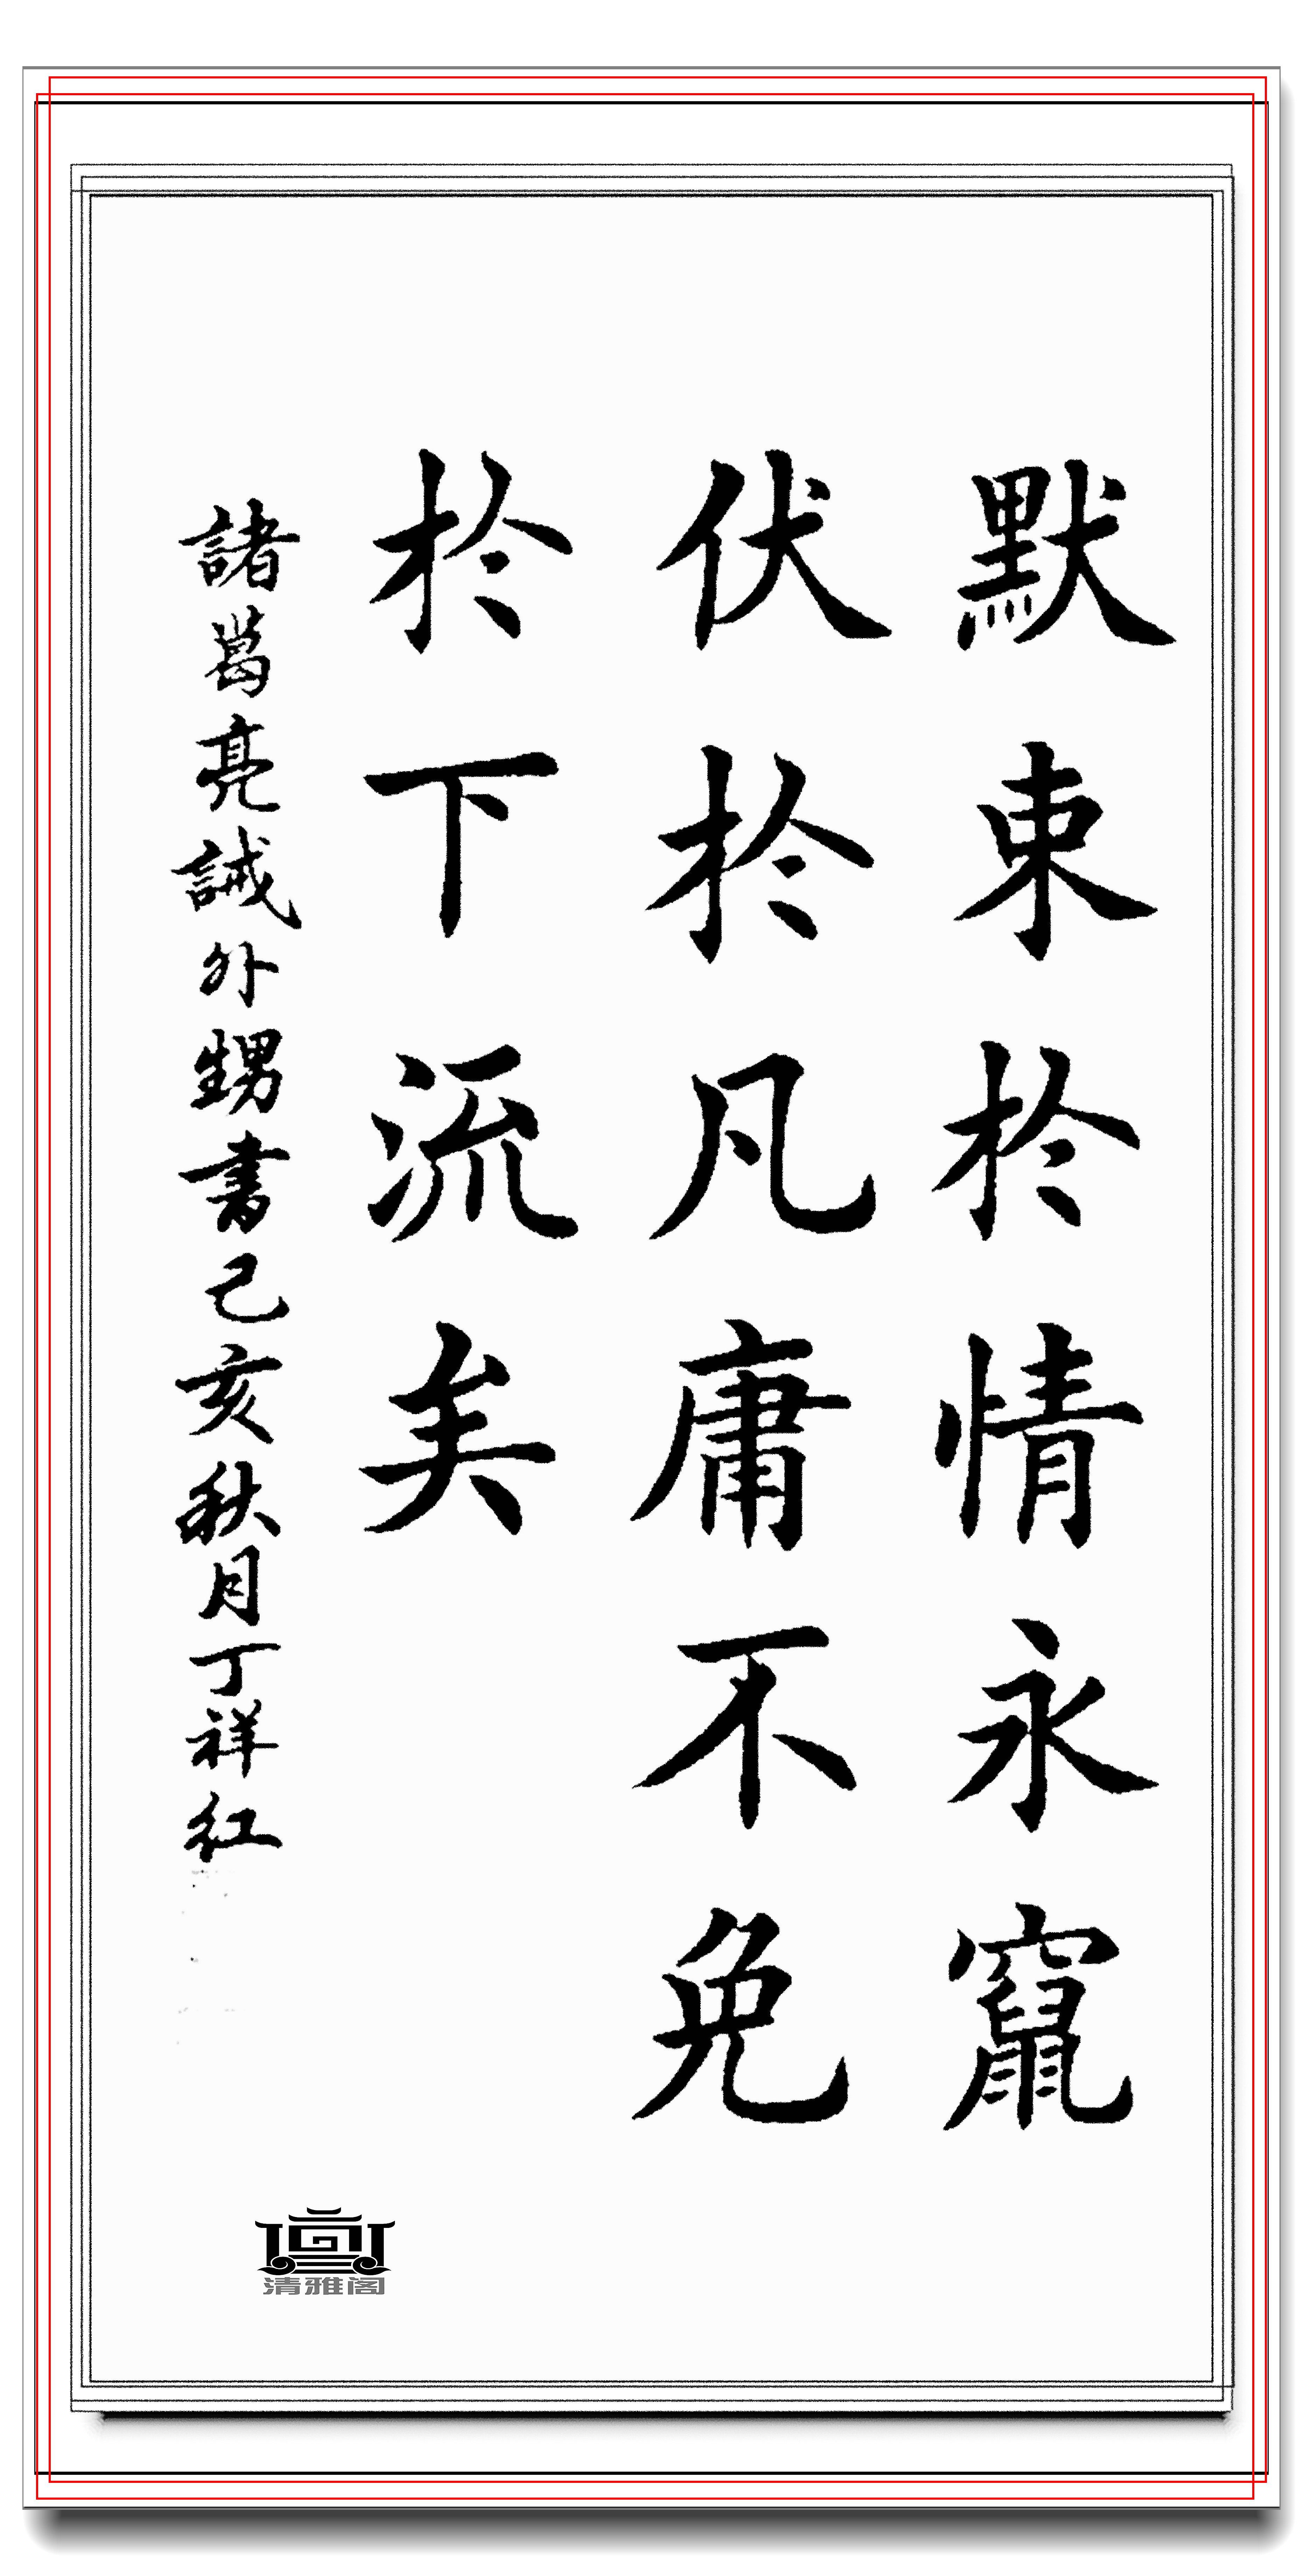 默束於情永竄
伏於凡庸不免
於下流矣
諸葛亮誡外甥書己亥秋月丁祥红
清雅阁